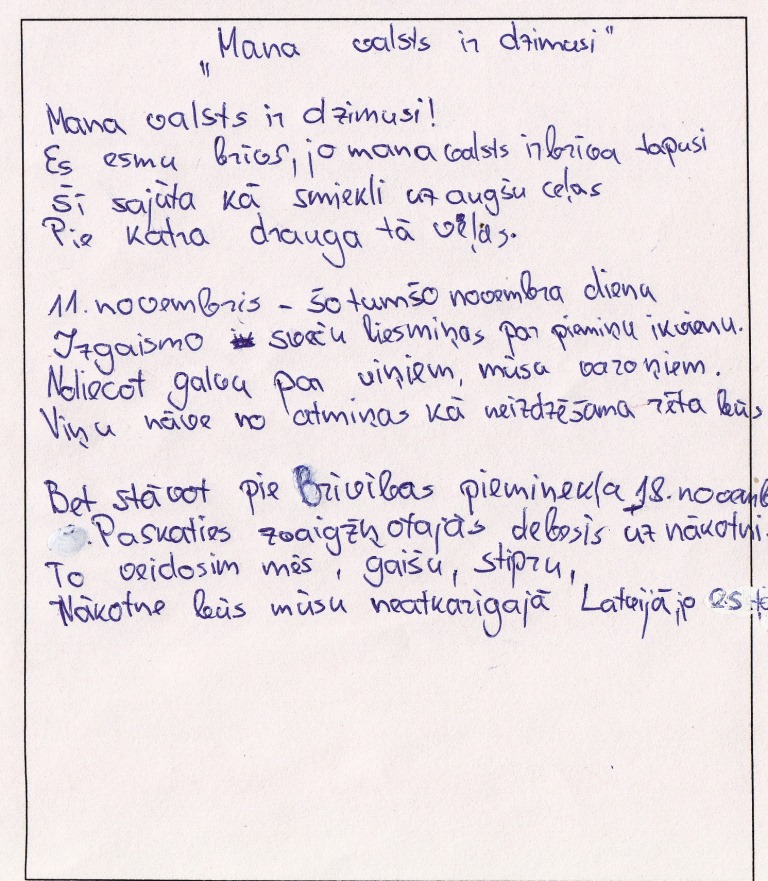 „Mana valsts ir dzimusi"
Mana valsts ir dzimusi!
Es esmu brīvs, jo mana valsts ir brīva tapusi
Šī sajūta kā smiekli uz augšu ceļas
Pie katra drauga tā veļas.
11. novembris - šo tumšo novembra dienu
Izgaismo sveču liesmiņas par piemiņu ikvienu.
Noliecot galvu par viņiem, mūsu varoņiem.
Viņu nāve no atmiņas kā neizdzēšama rēta būs
Bet stāvot pie Brīvības pieminekļa 18.
Paskaties zvaigžņotajās debesīs uz nākotni.
To veidosim mēs, gaišu, stipru,
Nākotne būs mūsu neatkarīgajā Latvijā, jo es